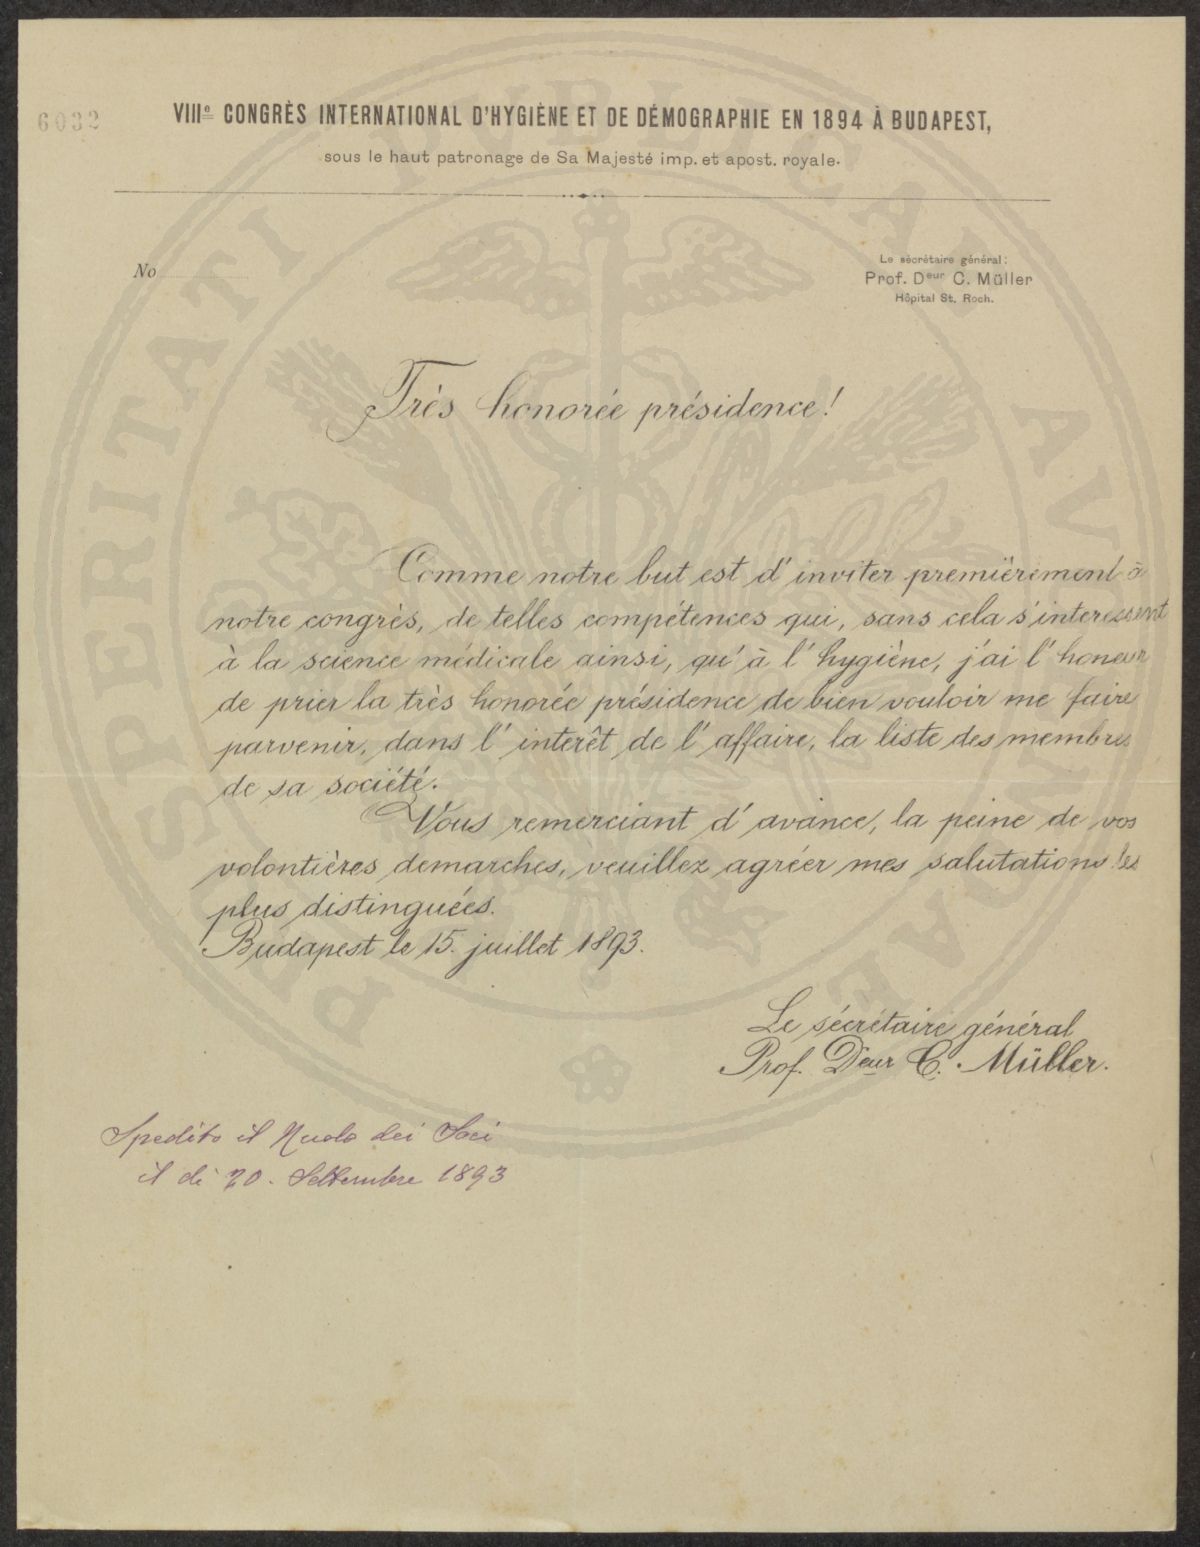 6032
VIIIe CONGRÈS INTERNATIONAL D'HYGIÈNE ET DE DÉMOGRAPHIE EN 1894 À BUDAPEST,
sous le haut patronage de Sa Majesté imp. et apost. royale.
No
Le sécrétaire général:
Prof. Deur C. Müller
Hôpital St. Roch.
Très honorée présidence!
Comme notre but est d'inviter premièrement à
notre congrès, de telles compétences qui, sans cela s'interessent
à la science médicale ainsi, qu'à l'hygiène, j'ai l'honeur
de prier la très honorée présidence de bien vouloir me faire
parvenir, dans l'interêt de l'affaire, la liste des membres
de sa société.
Vous remerciant d'avance, la peine de vos
volontières demarches, veuillez agréer mes salutations les
plus distinguées.
Budapest le 15. juillet 1893.
Le sécrétaire général
Prof. Deur C. Müller.
Spedito il Ruolo dei Soci
il dì 20. Settembre 1893